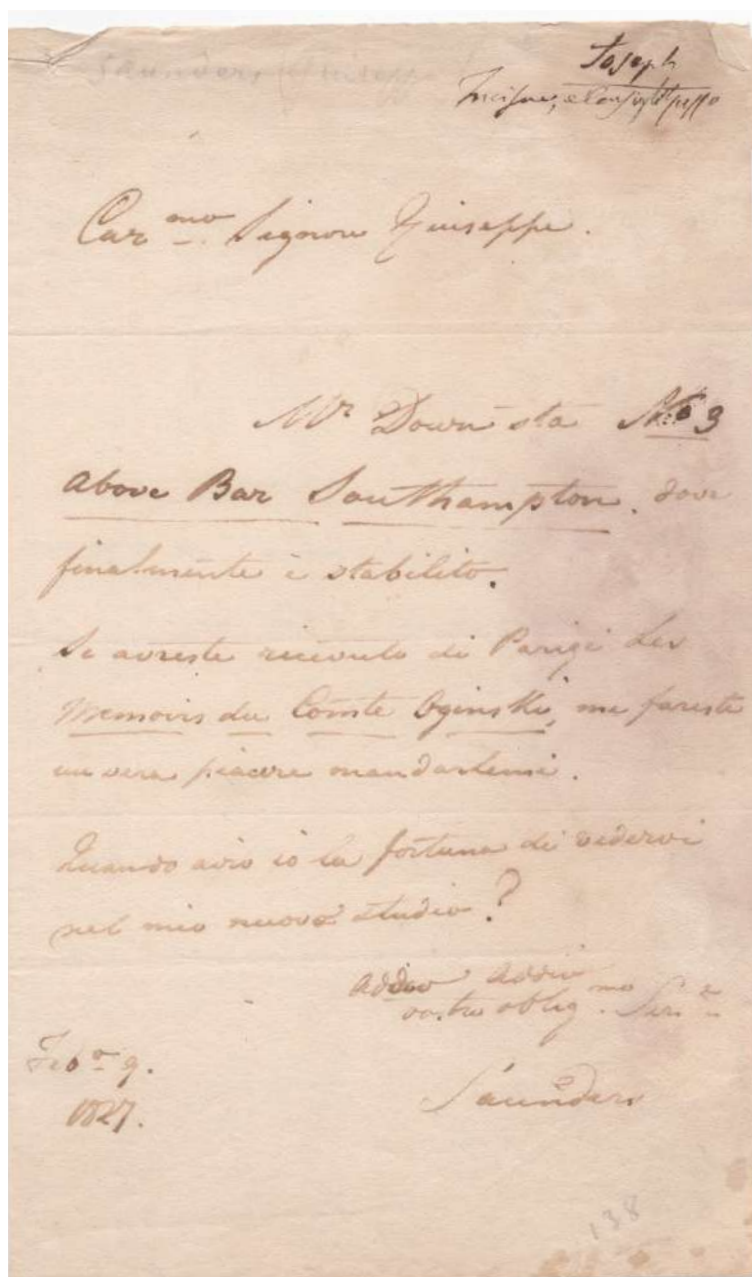 Saunders Giuseppe
Joseph
Incisore, e
Car.mo Signore Guiseppe.
Mr. Down sta No 3
above Bar Southampton. dove
finalmente è stabilito.
Se avreste ricevuto di Parigi Les
Memoirs du Comte Oginski, me fareste
un vera piacere mandartemi.
Quando avro io la fortuna di vedervi
nel mio nuovo studio?
addio addio
vostro oblig.mo Ser.re
Feb.o 9.
1827.
Saunders
138